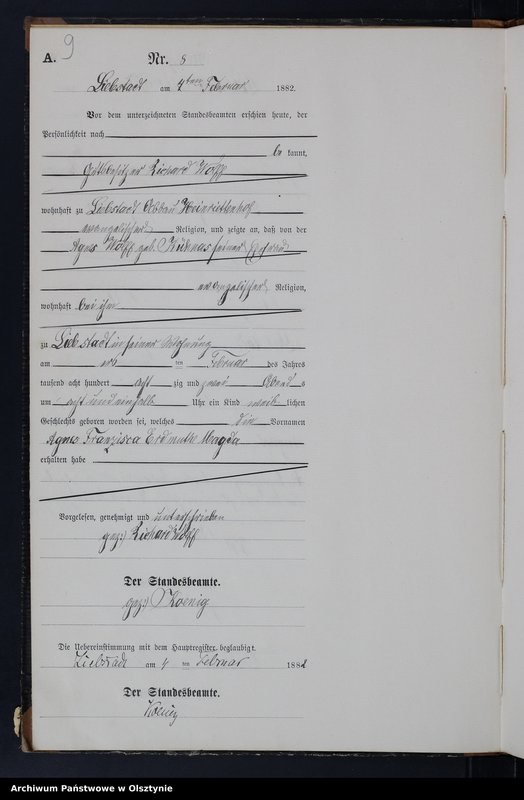 9
A.
Nr. 8
Liebstadt am 4ten Februar 1882.
Vor dem unterzeichneten Standesbeamten erschien heute, der
Persönlichkeit nach
be kannt,
Gutsbesitzer Richard Wolff
wohnhaft zu Liebstadt Abbau Henriettenhof
evangelischer Religion, und zeigte an, daß von der
Agnes Wolff geb. seiner Ehefrau
evangelischer Religion,
wohnhaft bei ihm
zu Liebstadt in seiner Wohnung
am ten Februar des Jahres
tausend acht hundert acht zig und zwei Abend s
um acht und einhalb Uhr ein Kind weib lichen
Geschlechts geboren worden sei, welches die Vornamen
Agnes Franzisca Erdmuthe Magda
erhalten habe
Vorgelesen, genehmigt und unterschrieben
gez:) Richard Wolff
Der Standesbeamte.
gez:) Koenig
Die Uebereinstimmung mit dem Hauptregister beglaubigt.
Liebstadt am 4 ten Februar 1882
Der Standesbeamte.
Koenig
Archiwum Państwowe w Olsztynie